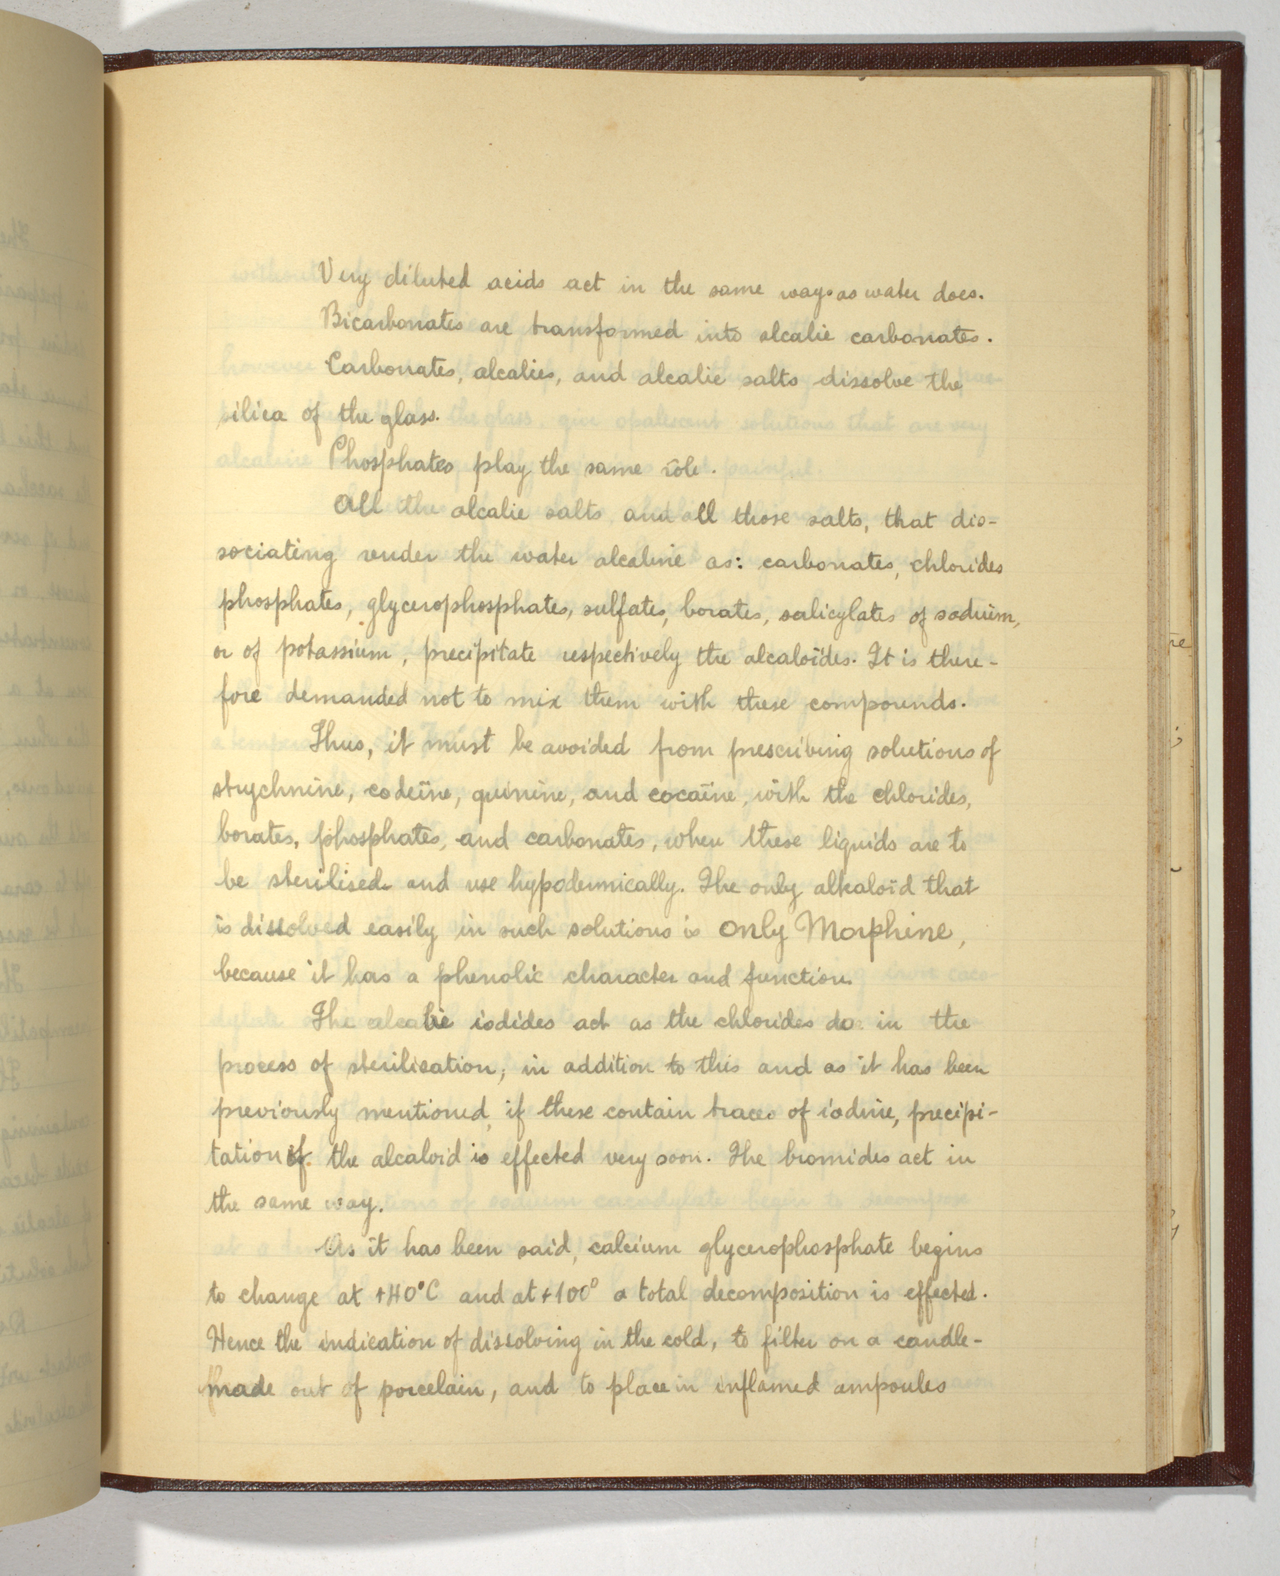 Very diluted acids act in the same way as water does.
Bicarbonates are transformed into alcalie carbonates.
Carbonates, alcalies, and alcalie salts dissolve the
silica of the glass.
Phosphates play the same rôle.
All the alcalie salts and all those salts, that dis-
sociating render the water alcaline as: carbonates, chlorides
phosphates, glycerophosphates, sulfates, borates, salicylates of sodium,
or of potassium, precipitate respectively the alcaloïdes. It is there-
fore demanded not to mix them with these compounds.
Thus, it must be avoided from prescribing solutions of
strychnine, codeïne, quinine, and cocaïne, with the chlorides,
borates, phosphates, and carbonates, when these liquids are to
be sterilised and use hypodermically. The only alkaloïd that
is dissolved easily in such solutions is only Morphine,
because it has a phenolic character and function.
The alcalie iodides act as the chlorides do in the
process of sterilication; in addition to this and as it has been
previously mentioned, if these contain traces of iodine, precipi-
tation of the alcaloid is effected very soon. The bromides act in
the same way.
As it has been said, calcium glycerophosphate begins
to change at +40°C and at +100° a total decomposition is effected.
Hence the indication of dissolving in the cold, to filter on a candle-
made out of porcelain, and to place in inflamed ampoules